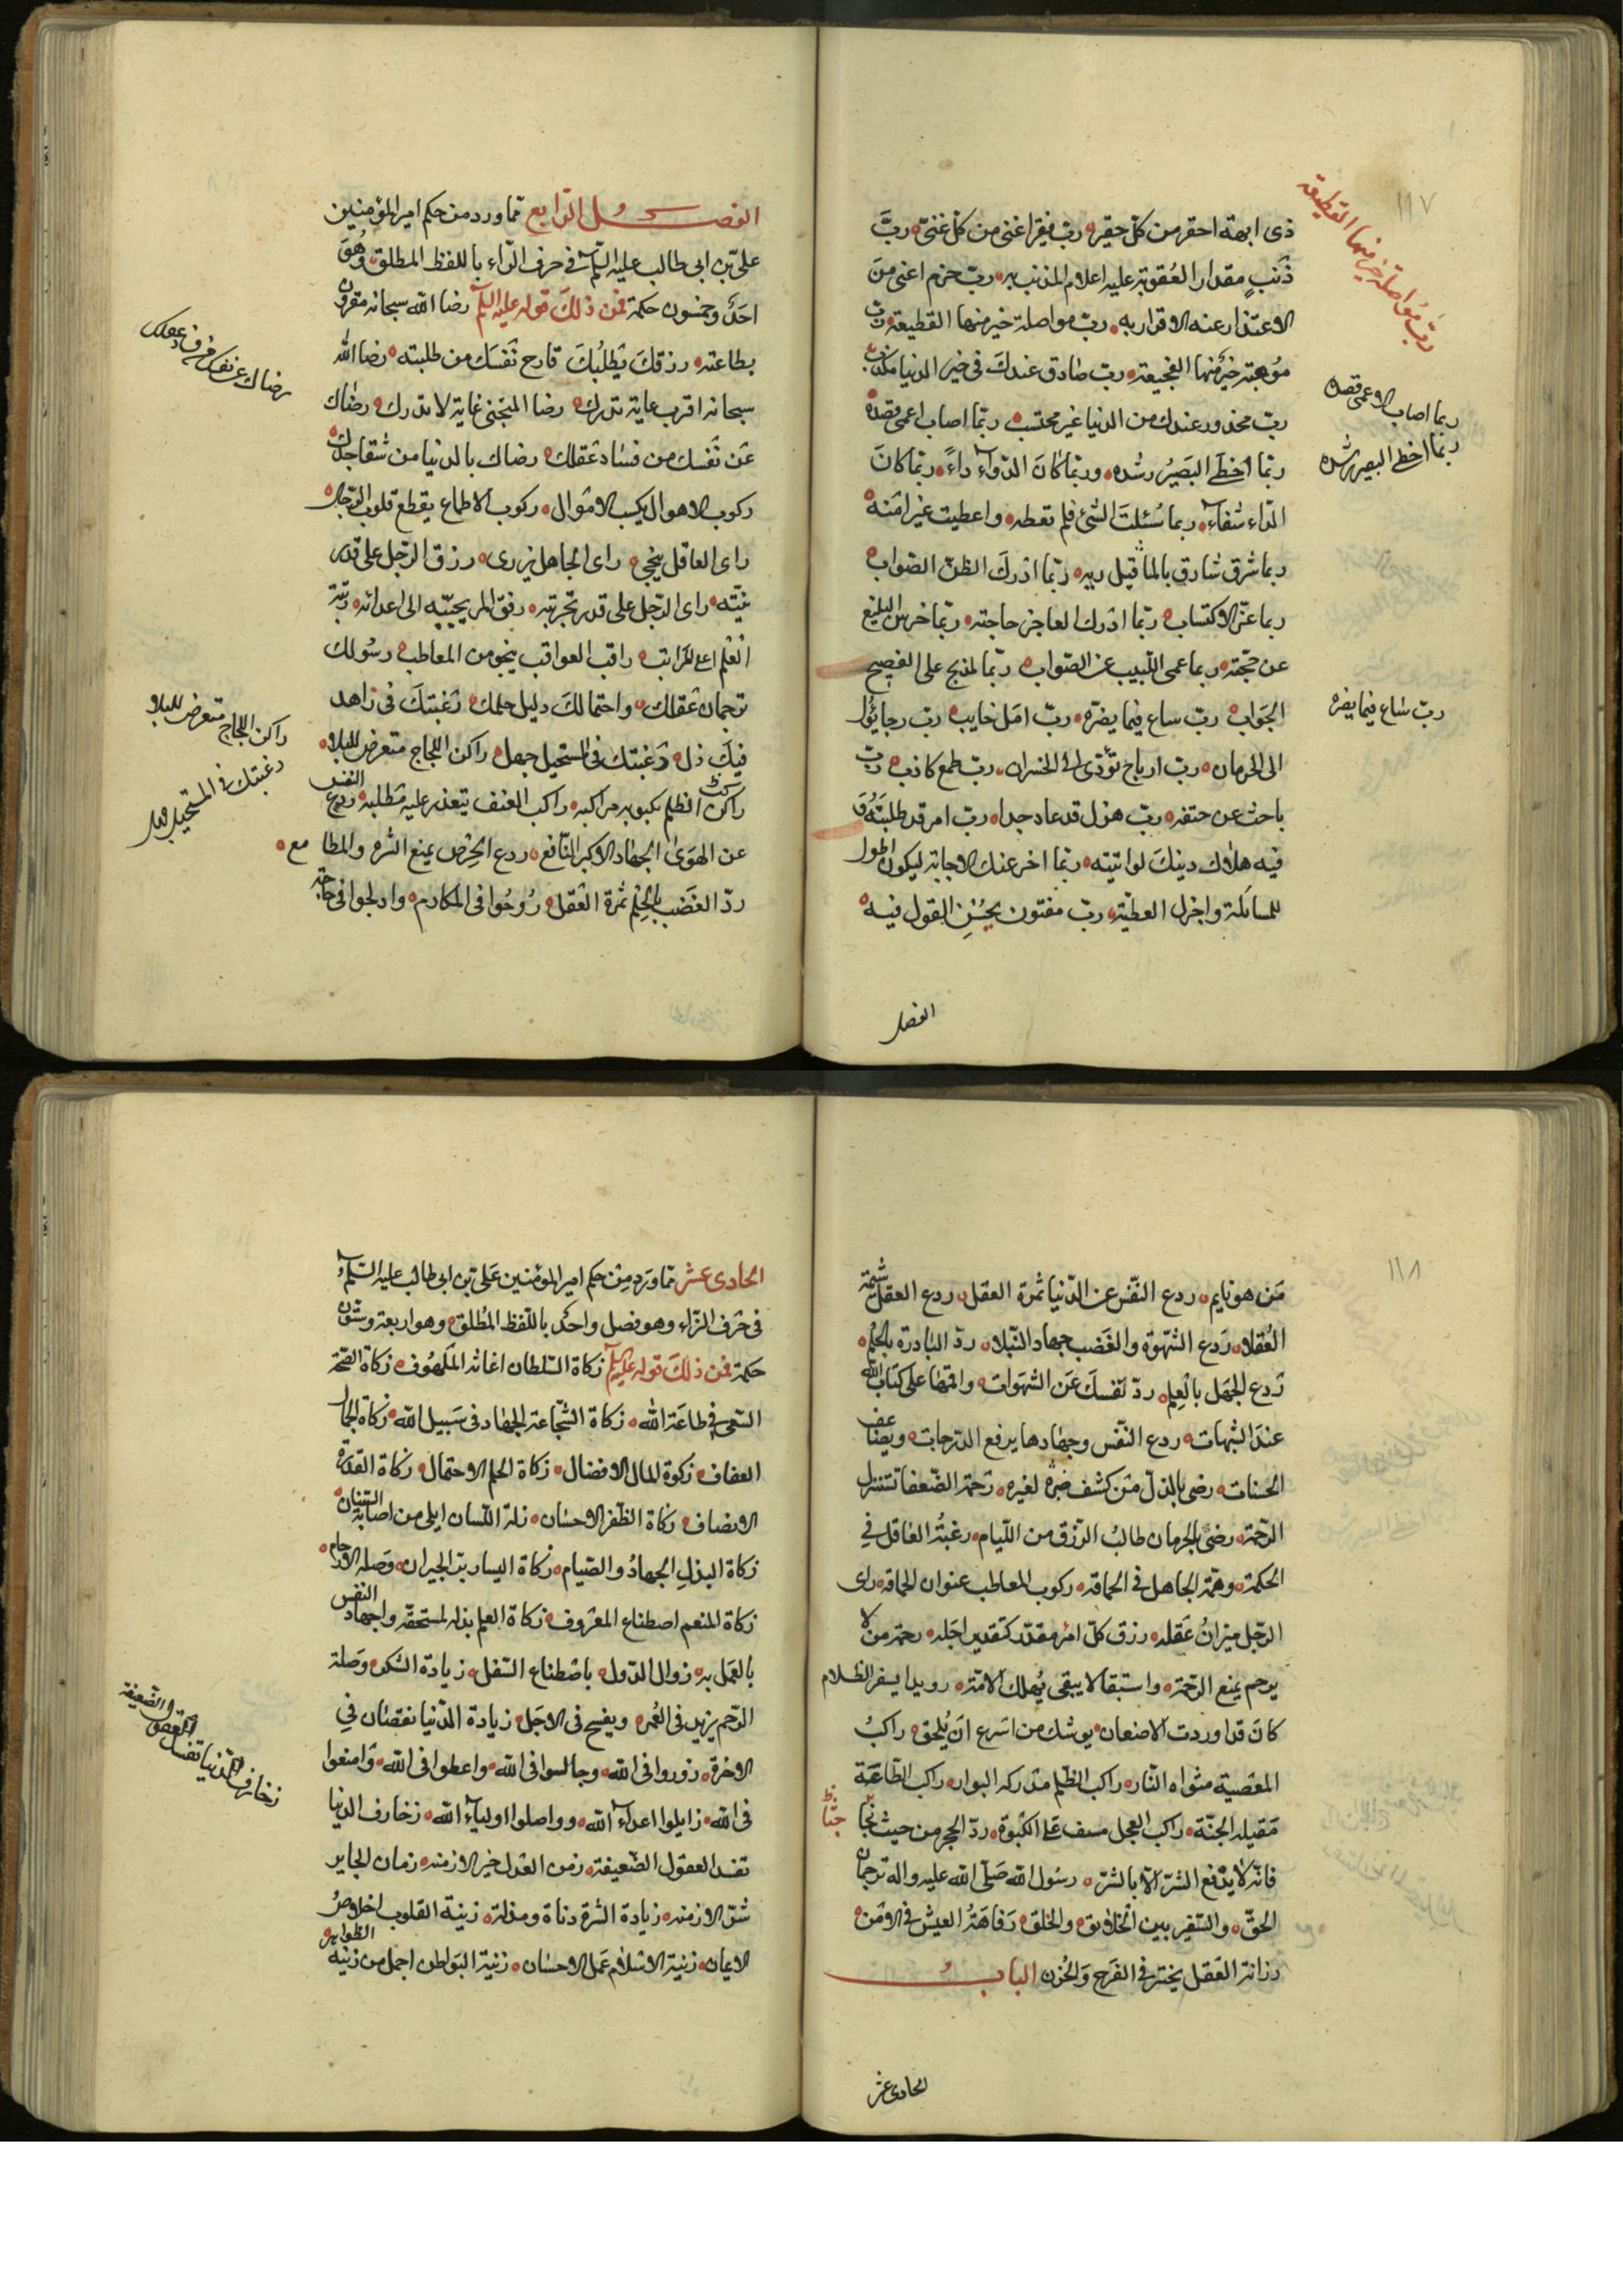 ١١٧
ذى ابهة احقر من كل حقير رب فقير اغنى من كل غنىّ ربّ
ذَنبٍ مقدار العُقوبة عليه اعلام المذنب به ربّ جرم اغنى منَ
الاعتذار عنه الاقرار به ربّ مواصلة خير منها القطيعة ربّ
مُوهبة خيرٌ منها الفجيعة ربّ صَادق عندكَ فى خبر الدنيا مكذّب
ربّ محذور عندك من الدنيا غير محتسب ربّما اصاب اعمى قصدهُ
ربّما اخطَأ البَصيرُ رشُده وربّما كانَ الدّوآء داءً ربّما كانَ
الدّاء شفآء ربما سُئلتَ الشئ فلم تعطه واعطيت خيرا منه
ربما شرق شارق بالمآ قبل ريه ربّما ادركَ الظنّ الصّواب
ربما عزّ الاكتساب ربّما ادرك العاجز حاجته ربّما خرس البليغ
عن حجّته ربما عمى اللّبيب عن الصّواب ربّما ارتج على الفصيح
الجَواب ربّ ساع فيما يضرّه ربّ امَل خايب ربّ رجا يؤل
الى الحرمان ربّ ارباح تؤدّى الى الخسران ربّ طمع كاذب ربّ
باحث عن حتفه ربّ هزل قد عاد جدا ربّ امر قد طلبتَهُ وَ
فيه هلاك دينكَ لو اتيته ربّما اخر عنك الاجابة ليكون اطول
للمسالَة واجزل العطيّة ربّ مفتون بحُسْنِ القول فيه
ربّ مُواصلة خير منها القطيعة
ربما اصاب الاعمى قصده
ربّما اخطأ البصير رشده
ربّ سَاع فيما يضره
الفصل
الفصل الرّابع ممّا ورد من حكم امير المؤمنين
علىّ بن ابى طالب عليه السّلم فى حرف الرّاء باللفظ المطلق وَهُوَ
احَدٌ وخمسُون حكمة فمن ذلكَ قوله عليه السلم رضا الله سبحانه مقرون
بطاعته رزقكَ يَطلُبُكَ فارح نَفسَك من طلبته رضا اللّه
سبحانه اقرب غاية تدرك رضا المتجنى غاية لا تدرك رضاك
عَن نَفسك من فسَاد عَقلك رضاك بالدنيا من شقا جدّك
ركوب الاهوال يكسب الامْوال ركوب الاطماع يقطع قلوب الرّجال
راى العاقل ينجى راى الجاهل يزرى رزق الرّجل على قدر
نيّته راى الرّجل على قدر تجربته رفق المرء يحبّبه الى اعدائه رتبة
العْلم اعلى المَراتب راقب العواقب ينجو من المعاطب رسُولك
ترجمان عَقلك واحتمالكَ دليل حلمك رَغبتكَ فى زاهد
فيكَ ذل رَغبتك فى المستحيل جهل راكن اللجاج متعرض للبلاء
راكب الظلم يكبو به مركبه راكب العنف يتعذر عليه مَطلبه ردع النّفس
عن الهَوىٰ الجهاد الاكبر النّافع ردع الحِرْص يمنع الشره والمطامع
ردّ الغَضَب بالْحِلْم ثمرة العَقل رُوحُوا فى المكارم وادلجوا فى حاجة
رضاك عن نفسك من فساد عقلك
راكن اللجاج متعرض للبلاء
رغبتك فى المستحيل جهل
١١٨
مَن هو نايم ردع النّفس عن الدّنيا ثمرة العقل ردع العقل شيمة
العُقلاء رَدع الشّهوة والغَضب جهاد النّبلاء ردّ البادرة بالحلم
رَدع الجَهل بالعِلم ردّ نَفسكَ عَن الشّهَوات واقمْها على كتاب اللّه
عندَ الشبُهات ردع النّفس وجهادها يرفع الدّرجات ويضَاعف
الحسنات رضى بالذلّ مَن كشف ضرّه لغيره رَحمَة الضّعفا تستنزل
الرّحمَة رضىَ بالحرمان طالبُ الرّزق من اللّيام رغبَةُ العَاقل فى
الحكمة وهمَّة الجاهل فى الحماقة ركوب المعاطب عنوان الحماقة راى
الرّجل ميزانُ عَقله رزق كلّ امرْ مقدّر كتقدير اجَله رحمة من لا
يرحم يمنع الرّحمَة واستبقا لا يبقى يُهلك الامّة رويدا يسفر الظلام
كانَ قد اوردت الاضعان يوشك من اسرع انَ يُلحق راكبُ
المعْصية مثواه النّار راكب الظلم مَدركه البوار راكب الطّاعَة
مَقيله الجنّة راكب العجل مسف عَلى الكبْوة ردّ الحجر من حيث جا
فانّه لا يدْفع الشرّ الّا بالشرّ رسُول اللّه صَلّى اللّه عليه واله ترجمان
الحقّ والسّفير بين الخلايق والخلق رَفاهَةُ العيش فى الامَن
رزانة العَقل يختبر فى الفَرح وَالحُزن الباب
الحادى عشر
الحادى عشَر ممّا ورَد مِنْ حكم امير المؤمنين عَلىّ بن ابى طالب عليه السّلم
فى حَرف الزّاء وهو فصل واحد باللّفظ المُطلق وهو اربعة وستّون
حكمة فمن ذلكَ قوله عليه السلم زكاة السّلطان اغاثة المَلهُوف زكاة الصّحّة
السّعى فى طاعَة اللّه زكاة الشّجاعة الجهاد فى سَبيل اللّه زكاة الجمال
العفاف زكوة المال الافضال زكاة الحلم الاحتمال زكاة القدرة
الانصاف زكاة الظّفر الاحسَان زلة اللّسان ابلى من اصابة السّنان
زكاة البدلِ الجهادُ والصّيام زكاة اليسار برّ الجيران وصَلة الارحام
زكاة المنعم اصطناع المعْروف زكاة العلم بذله لمستحقّه واجهاد النّفس
بالعَمل به زوال الدّول باصْطناع السّفل زيادة الشكر وصَلة
الرّحم يزيد فى العُمر ويفسح فى الاجَل زيادة الدّنيا نقصَان فى
الاخرة زوروا فى اللّه وجالسوا فى اللّه واعطوا فى اللّه وَامنعوا
فى اللّه زايلوا اعداء اللّه وواصلوا اولياء اللّه زخارف الدنيا
تفسد العقول الضّعيفة زمن العَدل خير الازمنة زمان الجاير
شرّ الازمنة زيادة الشره دناة ومذلة زينة القلوب اخلاصُ
الايمان زينة الاسْلام عَمل الاحسَان زينة البَواطن اجمل من زينَة الظواهر
زخارف الدّنيا تفسد العقول الضّعيفة